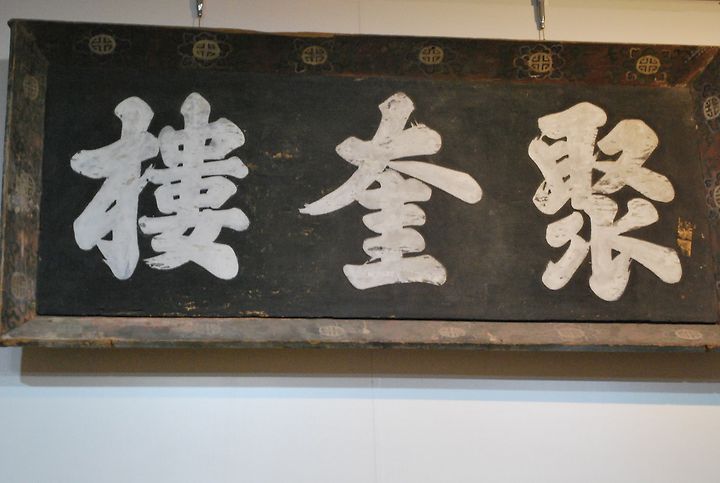 聚奎樓